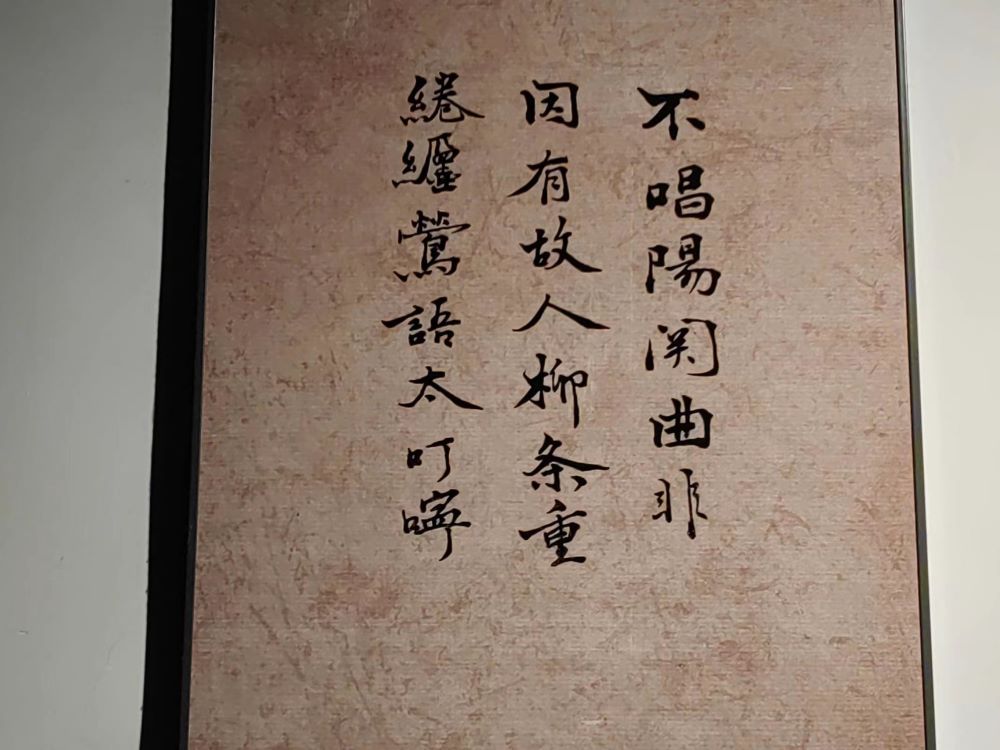 不唱陽関曲非
因有故人柳条重
綣纏鶯語太叮嚀